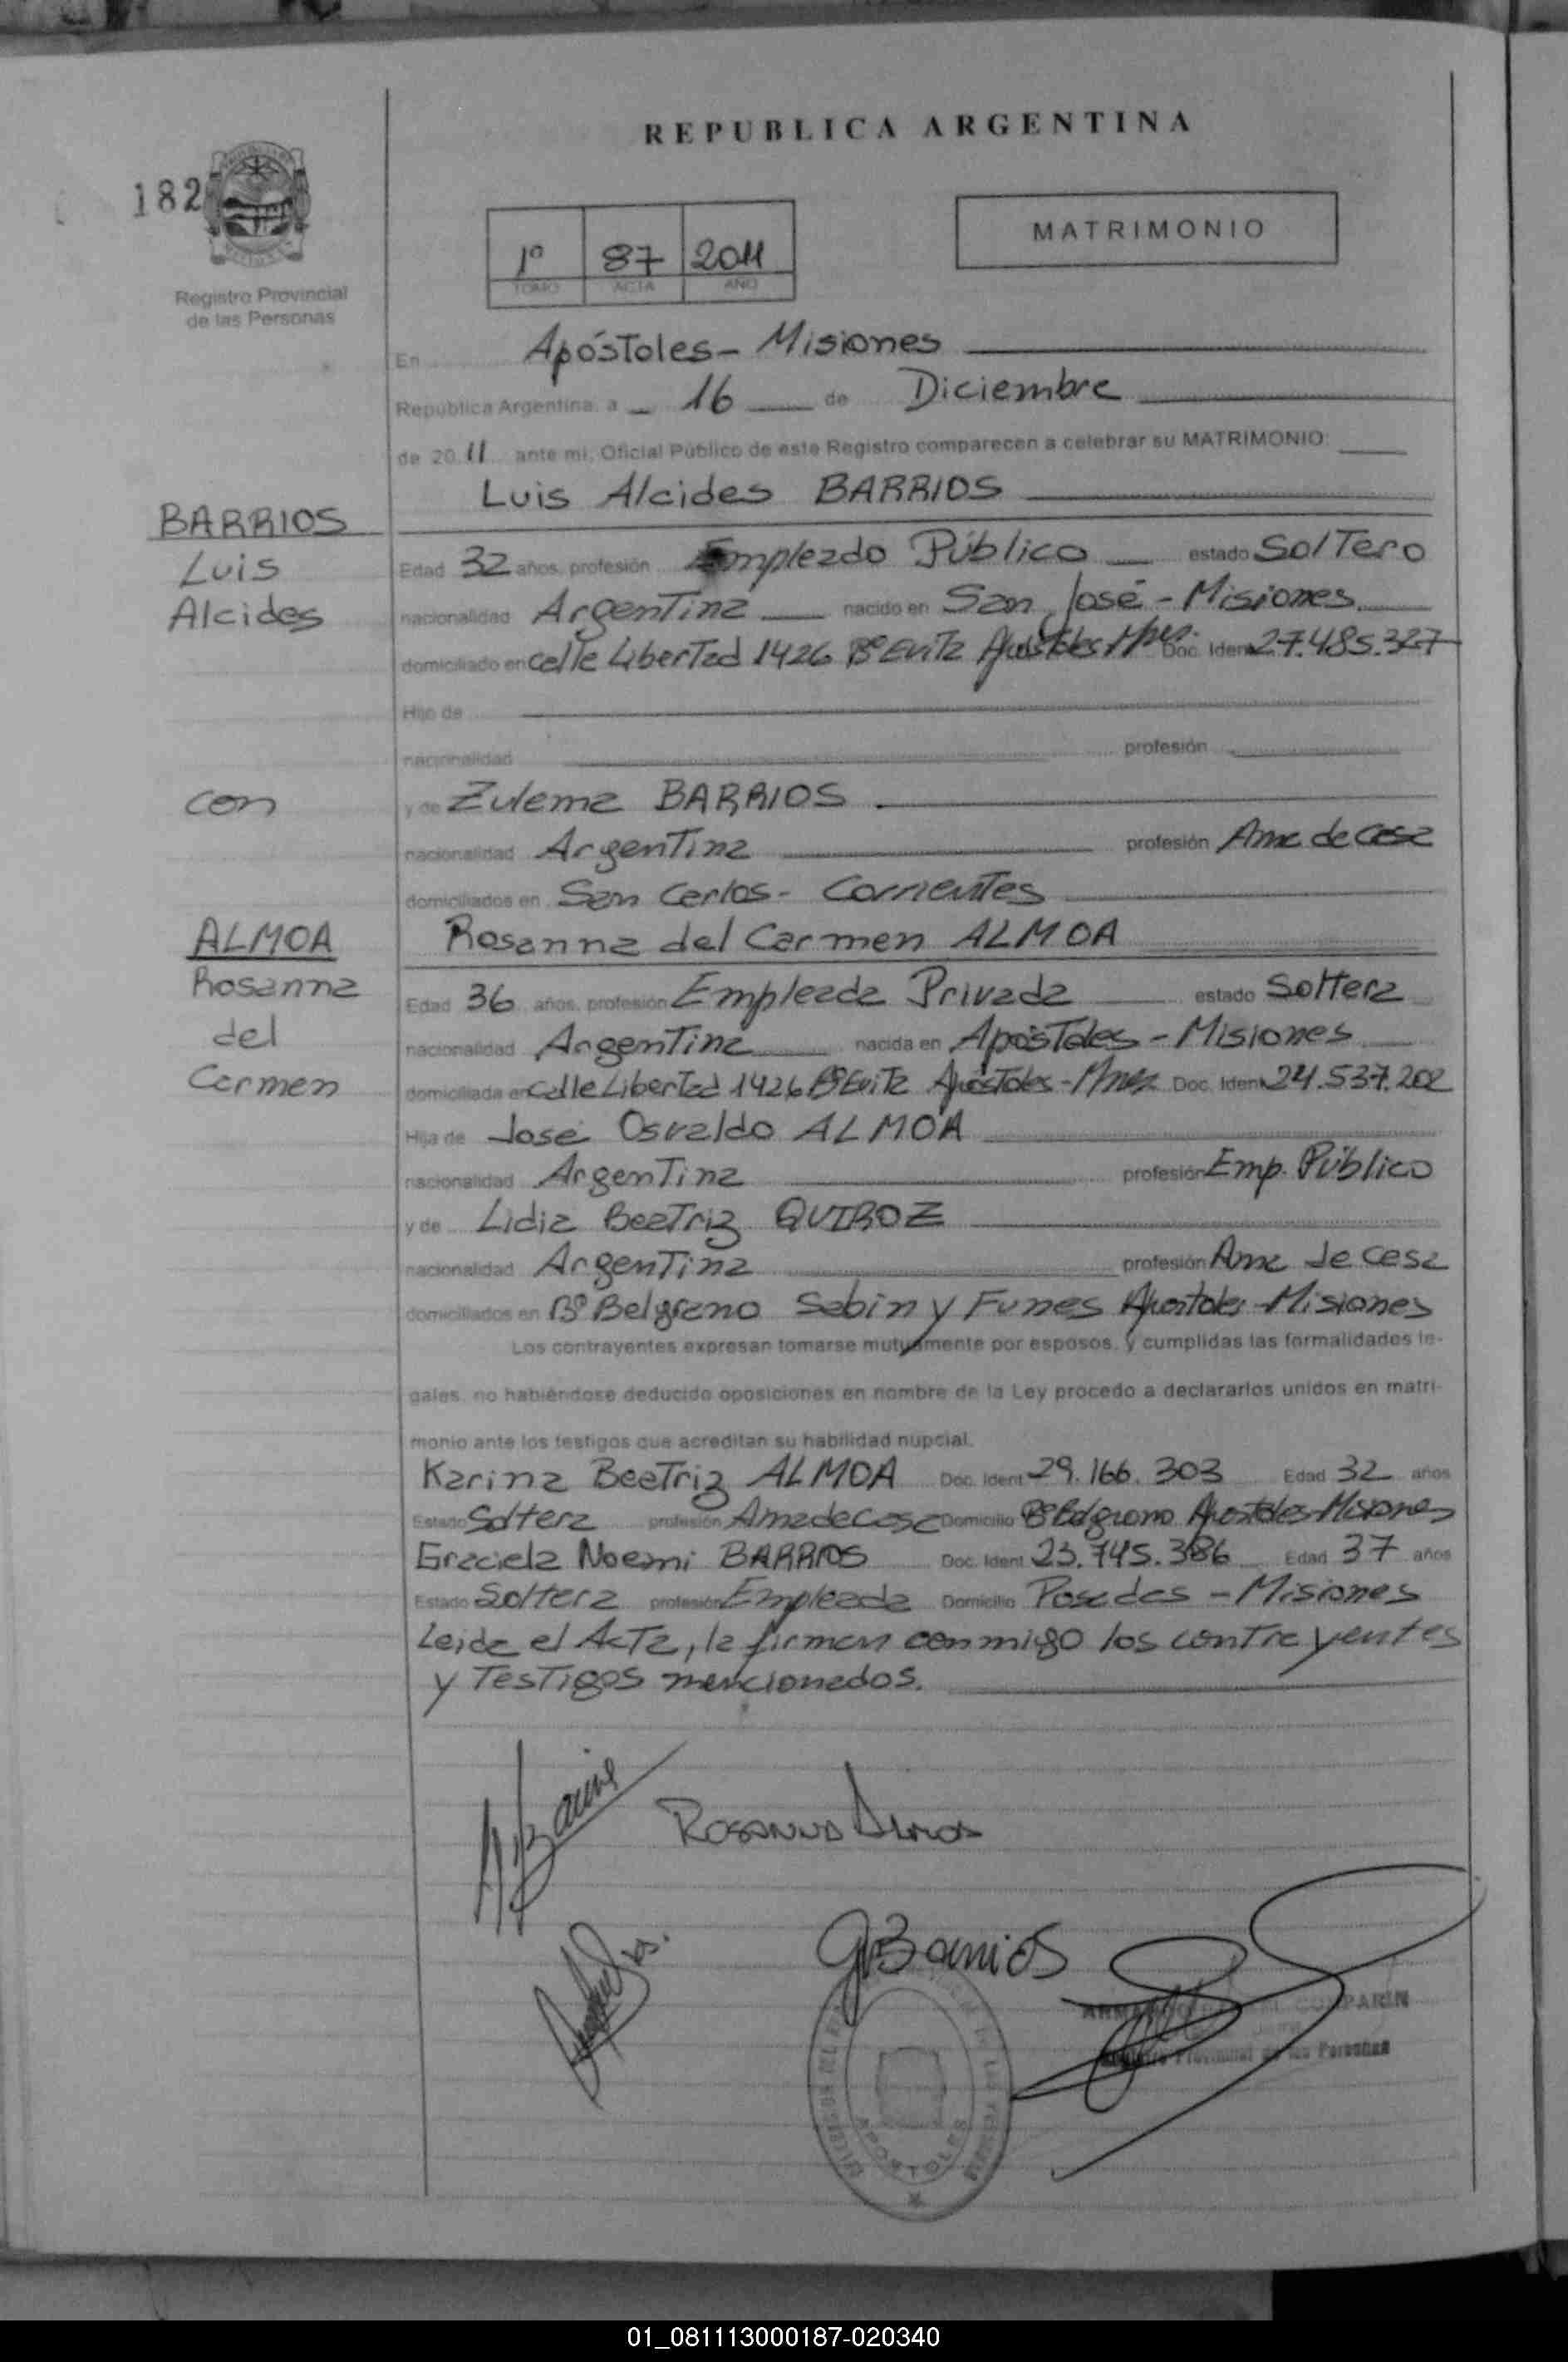 REPUBLICA ARGENTINA
182
MATRIMONIO
1º 87 2011
TOMO ACTA AÑO
Registro Provincial
de las Personas
En Apóstoles - Misiones
República Argentina, a 16 de Diciembre
de 2011 ante mi, Oficial Público de este Registro comparecen a celebrar su MATRIMONIO:
Luis Alcides BARRIOS
BARRIOS
Luis
Alcides
Edad 32 años, profesión Empleado Público estado Soltero
nacionalidad Argentina nacido en San José - Misiones
domiciliado en calle Libertad 1426 Bº Evita Apóstoles Mnes. Doc. Ident. 27.485.327
Hijo de
nacionalidad profesión
con
y de Zulema BARRIOS
nacionalidad Argentina profesión Ama de casa
domiciliados en San Carlos - Corrientes
ALMOA
Rosanna
del
Carmen
Rosanna del Carmen ALMOA
Edad 36 años, profesión Empleada Privada estado Soltera
nacionalidad Argentina nacida en Apóstoles - Misiones
domiciliada en calle Libertad 1426 Bº Evita Apóstoles - Mnes Doc. Ident. 24.537.202
Hija de José Osvaldo ALMOA
nacionalidad Argentina profesión Emp. Público
y de Lidia Beatriz QUIROZ
nacionalidad Argentina profesión Ama de casa
domiciliados en Bº Belgrano Sabin y Funes Apostoles - Misiones
Los contrayentes expresan tomarse mutuamente por esposos, y cumplidas las formalidades le-
gales, no habiéndose deducido oposiciones en nombre de la Ley procedo a declararlos unidos en matri-
monio ante los testigos que acreditan su habilidad nupcial.
Karina Beatriz ALMOA Doc. Ident. 29.166.303 Edad 32 años
Estado Soltera profesión Ama de casa Domicilio Bº Belgrano Apostoles - Misiones
Graciela Noemi BARRIOS Doc. Ident. 23.745.386 Edad 37 años
Estado Soltera profesión Empleada Domicilio Posadas - Misiones
Leida el Acta, la firman conmigo los contrayentes
y Testigos mencionados.
Rosanna Almoa
G Barrios
APOSTOLES
Registro Provincial de las Personas
01_081113000187-020340